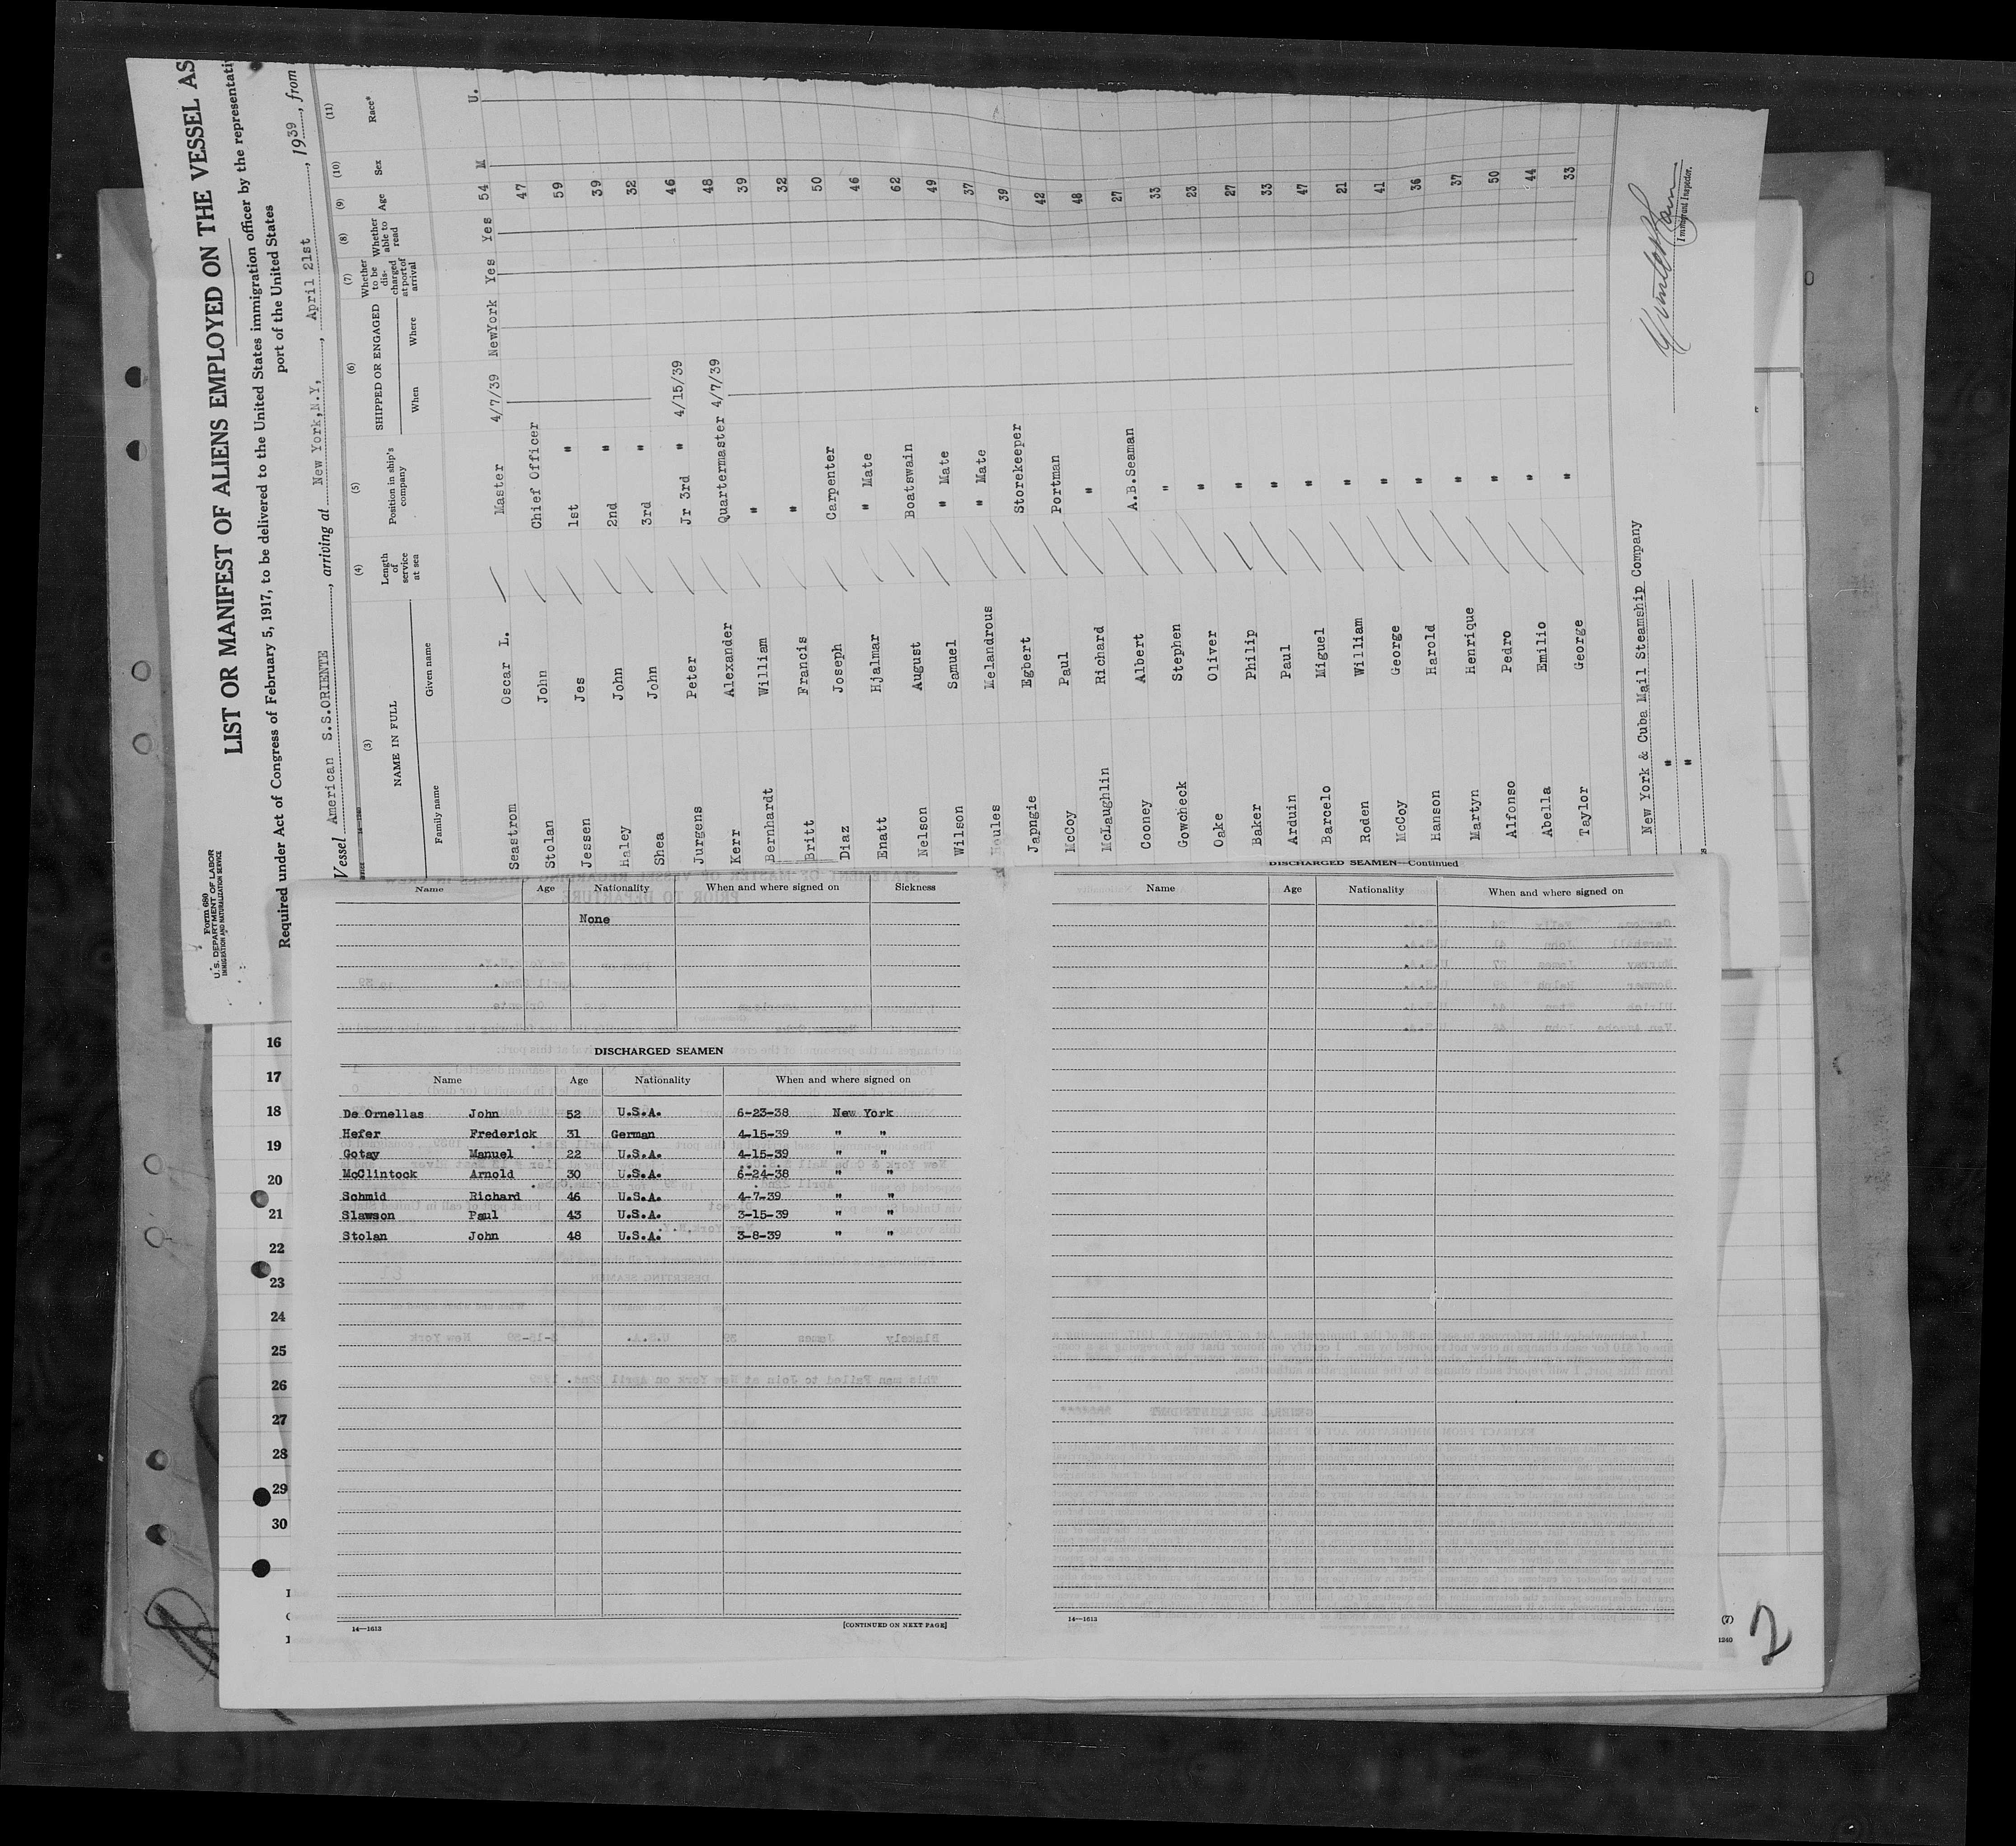 Form 680
U. S. DEPARTMENT OF LABOR
IMMIGRATION AND NATURALIZATION SERVICE
LIST OR MANIFEST OF ALIENS EMPLOYED ON THE VESSEL AS
Required under Act of Congress of February 5, 1917, to be delivered to the United States immigration officer by the representati
port of the United States
Vessel American S.S.ORIENTE, arriving at New York,N.Y, April 21st, 1939, from
(3) (4) (5) (6) (7) (8) (9) (10) (11)
NAME IN FULL Length of service at sea Position in ship's company SHIPPED OR ENGAGED Whether to be discharged at port of arrival Whether able to read Age Sex Race*
Family name Given name When Where
Seastrom Oscar L. Master 4/7/39 NewYork Yes Yes 54 M U.
Stolan John Chief Officer 47
Jessen Jes 1st " 59
Haley John 2nd " 39
Shea John 3rd " 32
Jurgens Peter Jr 3rd " 4/15/39 46
Kerr Alexander Quartermaster 4/7/39 48
Bernhardt William " 39
Britt Francis " 32
Diaz Joseph Carpenter 50
Enatt Hjalmar " Mate 46
Nelson August Boatswain 62
Wilson Samuel " Mate 49
Melandrous " Mate 37
Japngie Egbert Storekeeper 39
McCoy Paul Portman 42
McLaughlin Richard " 48
Cooney Albert A.B.Seaman 27
Gowcheck Stephen " 33
Orake Oliver " 23
Baker Philip " 27
Arduin Paul " 33
Barcelo Miguel " 47
Roden William " 21
McCoy George " 41
Hanson Harold " 36
Martyn Henrique " 37
Alfonso Pedro " 50
Abella Emilio " 44
Taylor George " 33
New York & Cuba Mail Steamship Company
" "
Immigrant Inspector.
Name Age Nationality When and where signed on Sickness
None
DISCHARGED SEAMEN
Name Age Nationality When and where signed on
De Ornellas John 52 U.S.A. 6-23-38 New York
Hefer Frederick 31 German 4-15-39 " "
Gotay Manuel 22 U.S.A. 4-15-39 " "
McClintock Arnold 30 U.S.A. 6-24-38 " "
Schmid Richard 46 U.S.A. 4-7-39 " "
Slawson Paul 43 U.S.A. 3-15-39 " "
Stolan John 48 U.S.A. 3-8-39 " "
14—1613 [CONTINUED ON NEXT PAGE]
DISCHARGED SEAMEN—Continued
Name Age Nationality When and where signed on
14—1613
16
17
18
19
20
21
22
23
24
25
26
27
28
29
30
(7)
1240
2